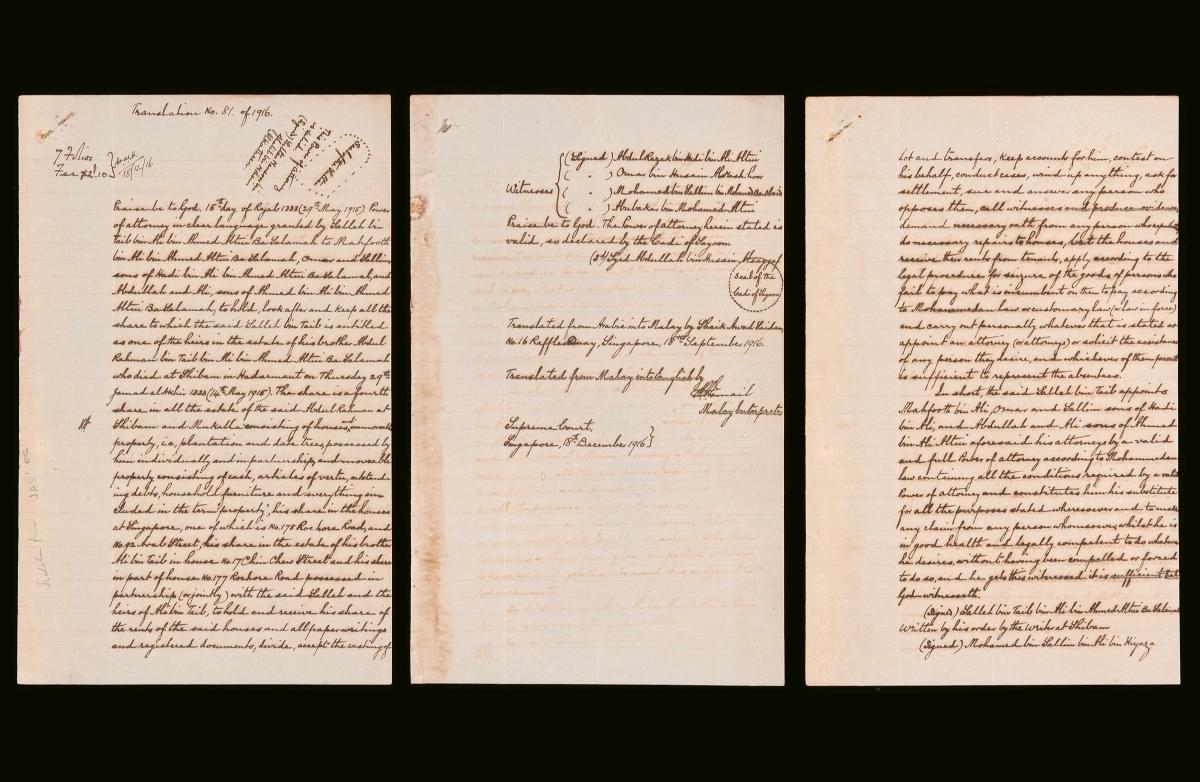 Translation No. 81. of 1916.
7 Folios
Fee $2.10
18/12/16
Praise be to God. 15th day of Rejab 1333 (29th May 1915). Power
of attorney in clear language granted by Salleh bin
Taib bin Ali bin Ahmed Altui Ba Salamah to Mahfooth
bin Ali bin Ahmed Altui Ba Salamah, Omar and Sallim
sons of Hadi bin Ali bin Ahmed Altui Ba Salamah, and
Abdullah and Ali, sons of Ahmed bin Ali bin Ahmed
Altui Ba Salamah, to hold, look after and keep all the
share to which the said Salleh bin Taib is entitled
as one of the heirs in the estate of his brother Abdul
Rahman bin Taib bin Ali bin Ahmed Altui Ba Salamah
who died at Shibam in Hadarmaut on Thursday 29th
Jamad al Akhir 1333 (14th May 1915). The share is a fourth
share in all the estate of the said Abdul Rahman at
Shibam and Mukalla consisting of houses, and immovable
property, i.e, plantation and date trees, possessed by
him individually and in partnership, and moveable
property consisting of cash, articles of vertu, outstand-
ing debts, household furniture and everything in-
cluded in the term "property", his share in the houses
at Singapore, one of which is No. 178 Rochore Road, and
No. 92 Arab Street, his share in the estate of his brother
Ali bin Taib in house No. 17 Chin Chew Street and his share
in part of house No. 177 Rochore Road possessed in
partnership (or jointly) with the said Salleh and the
heirs of Ali bin Taib, to hold and receive his share of
the rents of the said houses and all paper writings
and registered documents, divide, accept the casting of
Witnesses
(Signed) Abdul Razak bin Hadi bin Ali Altui
( " ) Omar bin Husain
( " ) Mohamed bin Sallim bin Mohamed
( " ) Abubakar bin Mohamed Altui
Praise be to God. The Power of attorney herein stated is
valid, so declared by the Cadi of Sayoon
(Sd) Syed Abdullah bin Husain
Seal of the
Cadi of Sayoon
Translated from Arabic into Malay by Shaik Awad Saidan,
No. 16 Raffles Quay, Singapore, 18th September 1916.
Translated from Malay into English by
Malay Interpreter
Supreme Court,
Singapore, 18th December 1916
lot and transfers, keep accounts for him, contest on
his behalf, conduct cases, wind up anything, ask for
settlement, sue and answer any person who
opposes them, call witnesses and produce evidence,
demand necessary oath from any person
do necessary repairs to houses, let the houses and
receive their rents from tenants, apply according to the
legal procedure for seizure of the goods of persons who
fail to pay what is incumbent on them to pay according
to Mohammedan law or customary law (or law in force)
and carry out personally whatever that is stated or
appoint an attorney (or attorneys) or solicit the assistance
of any person they desire, and whichever of them present
is sufficient to represent the absentees.
In short, the said Salleh bin Taib appoints
Mahfooth bin Ali, Omar and Sallim sons of Hadi
bin Ali, and Abdullah and Ali sons of Ahmed
bin Ali Altui aforesaid his attorneys by a valid
and full Power of attorney according to Mohammedan
law containing all the conditions required by a valid
Power of attorney and constitutes him his substitute
for all the purposes stated wheresoever and to make
any claim from any person whomsoever, whilst he is
in good health and legally competent to do whatever
he desires, without having been compelled or forced
to do so, and he gets this witnessed. it is sufficient that
God witnesseth.
(Signed) Salleh bin Taib bin Ali bin Ahmed Altui Ba Salamah
Written by his order by the Writer at Shibam
(Signed) Mohamed bin Sallim bin Ali bin